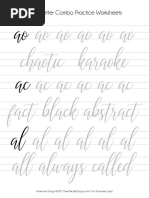 Letter Combo Practice Worksheets
ao ao ao ao ao ao
chaotic karaoke
ac ac ac ac ac ac
fact black abstract
al al al al al al
all always called